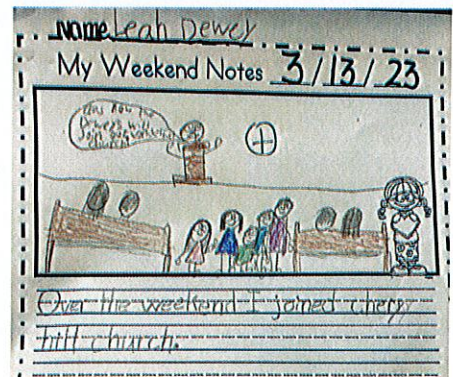 Name Leah Dewey
My Weekend Notes 3/13/23
Deweys will
Join our
church
Over the weekend I joined chery
hill church.